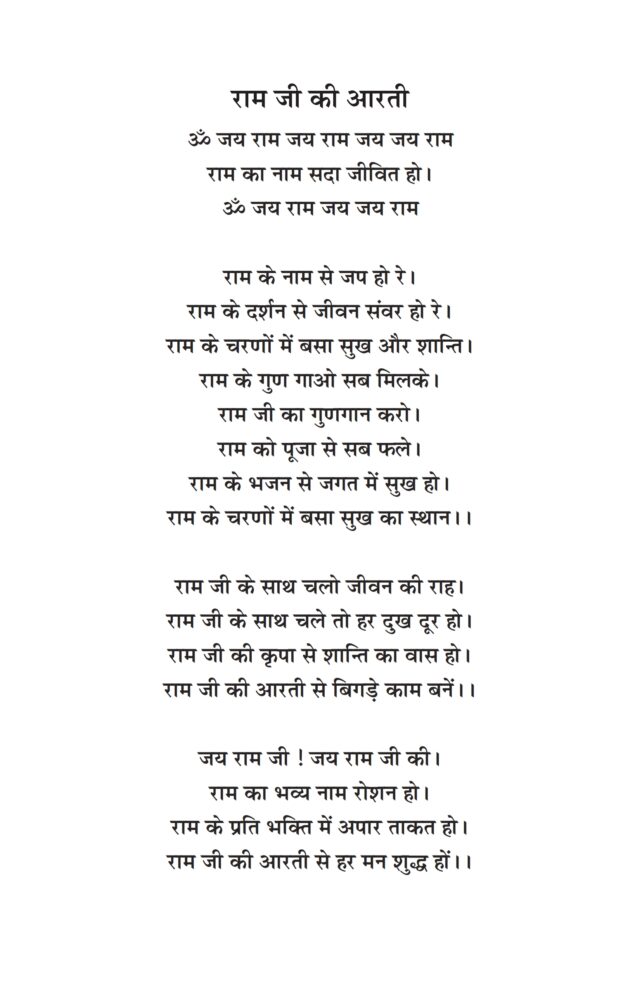 राम जी की आरती
ॐ जय राम जय राम जय जय राम
राम का नाम सदा जीवित हो।
ॐ जय राम जय जय राम
राम के नाम से जप हो रे।
राम के दर्शन से जीवन संवर हो रे।
राम के चरणों में बसा सुख और शान्ति।
राम के गुण गाओ सब मिलके।
राम जी का गुणगान करो।
राम को पूजा से सब फले।
राम के भजन से जगत में सुख हो।
राम के चरणों में बसा सुख का स्थान।।
राम जी के साथ चलो जीवन की राह।
राम जी के साथ चले तो हर दुख दूर हो।
राम जी की कृपा से शान्ति का वास हो।
राम जी की आरती से बिगड़े काम बनें।।
जय राम जी ! जय राम जी की।
राम का भव्य नाम रोशन हो।
राम के प्रति भक्ति में अपार ताकत हो।
राम जी की आरती से हर मन शुद्ध हों।।